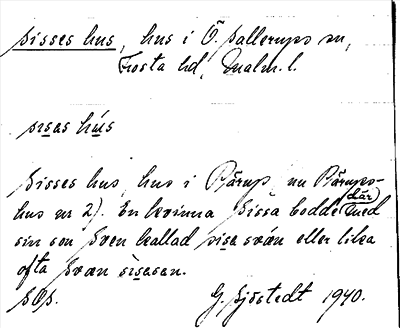 Sisses hus, hus i Ö. Sallerups sn,
Frosta hd, Malm. l.
sisas hús
Sisses hus, hus i Rårup, nu Rårups-
hus nr 2). En kvinna Sissa bodde där med
sin son Sven kallad sisa svän eller lika
ofta Svæn sisasan.
SOS.
G. Sjöstedt 1940.